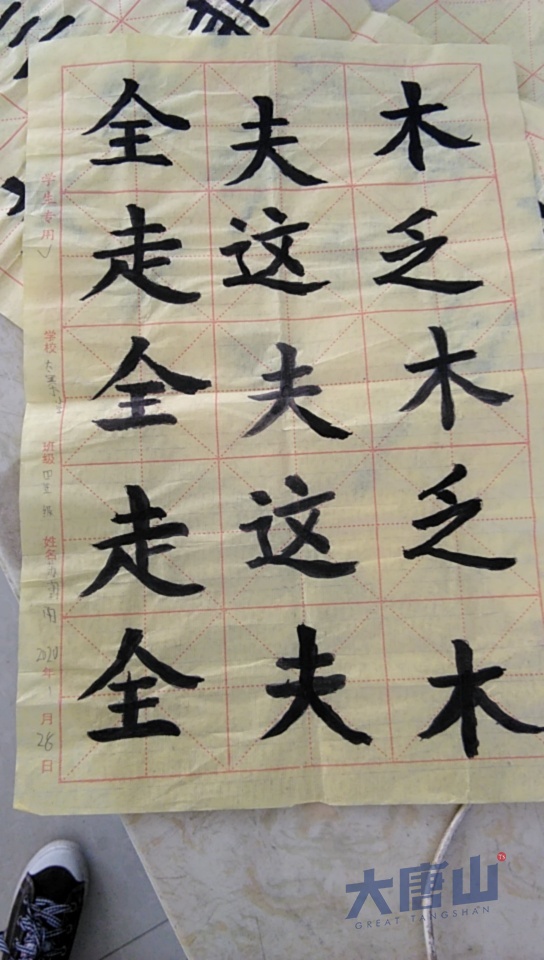 全 夫 木
走 这 乏
全 夫 木
走 这 乏
全 夫 木
学生专用
学校
班级
姓名
2020年1月26日
大唐山
TS
GREAT TANGSHAN